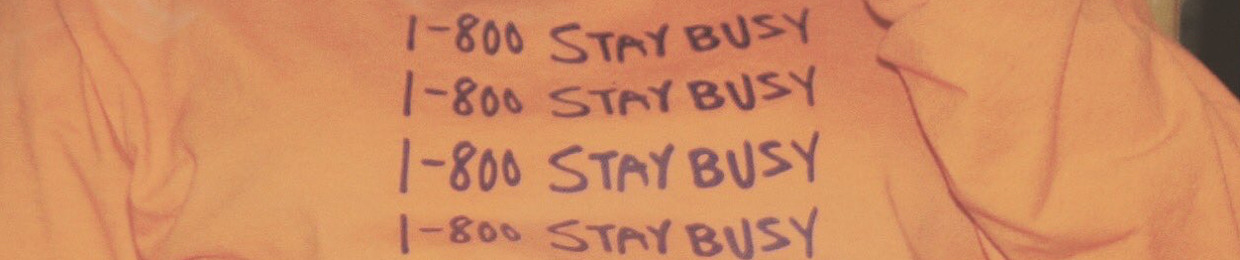 1-800 STAY BUSY
1-800 STAY BUSY
1-800 STAY BUSY
1-800 STAY BUSY